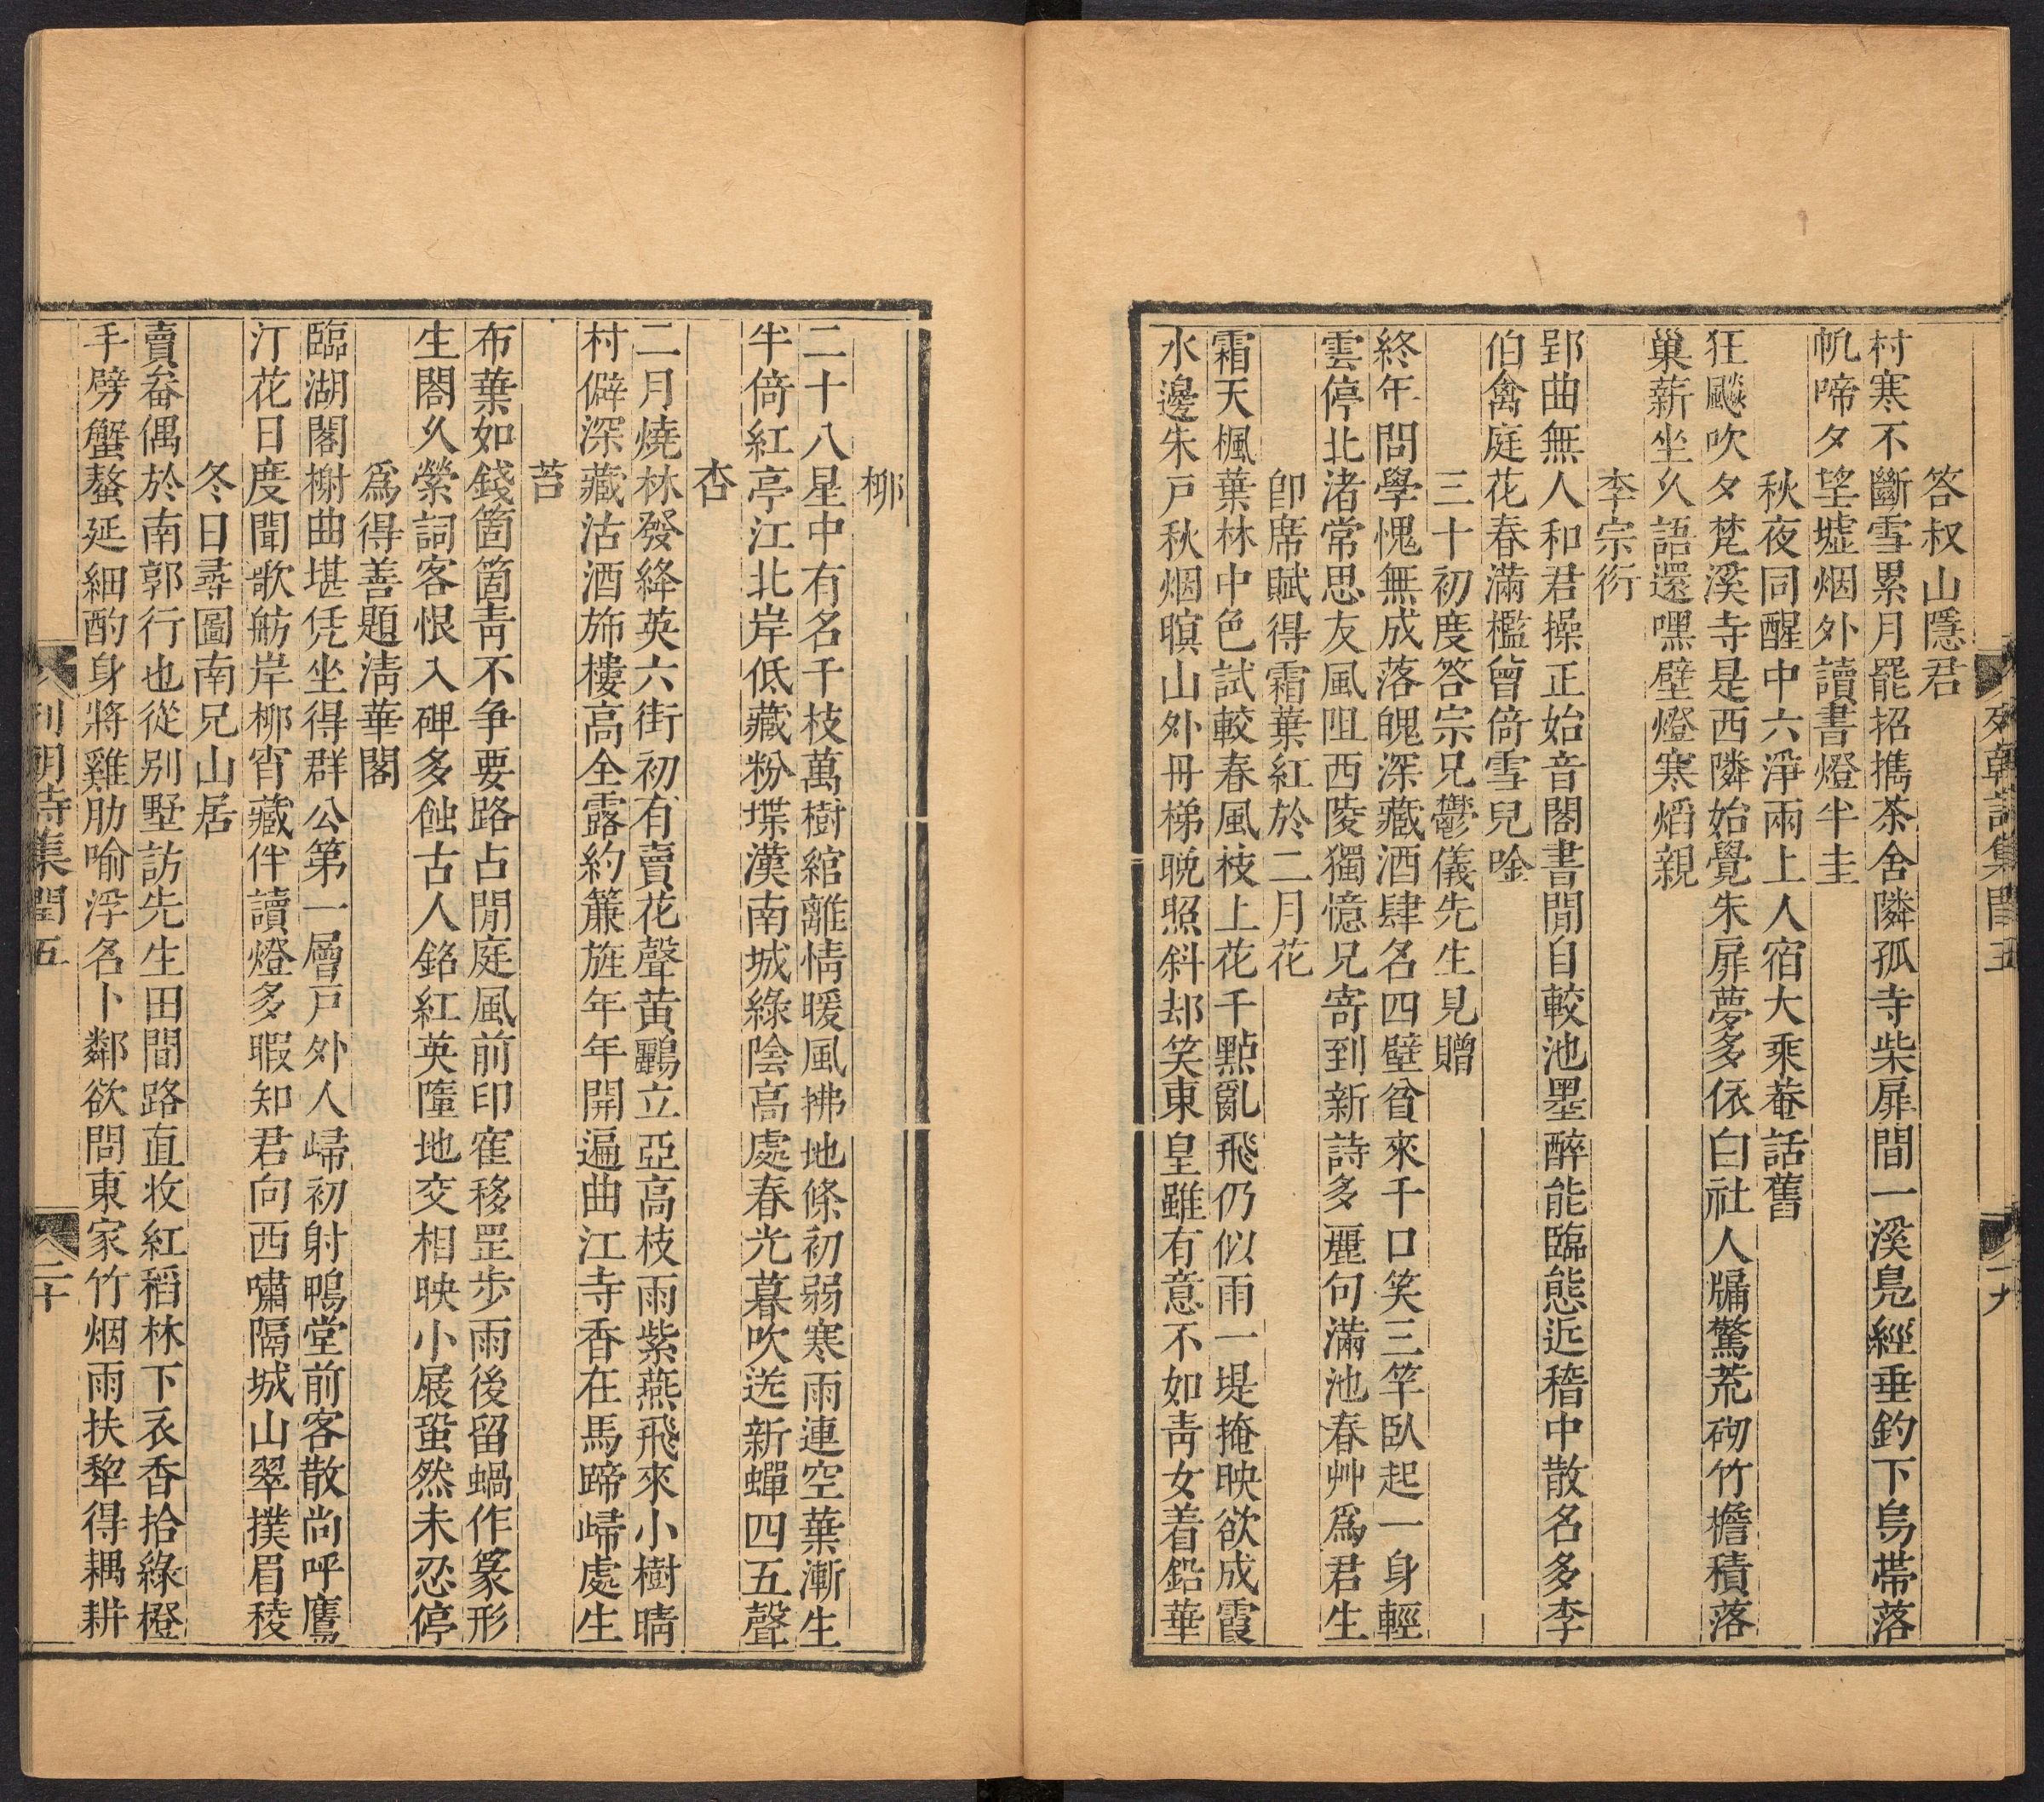 列朝詩集閏五
十九
答叔山隱君
村寒不斷雪累月罷招擕茶舍隣孤寺柴扉間一溪鳧經垂釣下烏帶落
帆啼夕望墟烟外讀書燈半圭
秋夜同醒中六淨兩上人宿大乘菴話舊
狂飈吹夕梵溪寺是西隣始覺朱扉夢多依白社人牖驚荒砌竹檐積落
巢薪坐久語還嘿壁燈寒熖親
李宗衍
郢曲無人和君操正始音閣書閒自較池墨醉能臨態近稽中散名多李
伯禽庭花春滿檻曾倚雪兒唫
三十初度答宗兄鬱儀先生見贈
終年問學愧無成落魄深藏酒肆名四壁貧來千口笑三竿臥起一身輕
雲停北渚常思友風阻西陵獨憶兄寄到新詩多麗句滿池春艸爲君生
卽席賦得霜葉紅於二月花
霜天楓葉林中色試較春風枝上花千點亂飛仍似雨一堤掩映欲成霞
水邊朱戶秋烟暝山外丹梯晚照斜却笑東皇雖有意不如靑女着鉛華
柳
二十八星中有名千枝萬樹綰離情暖風拂地條初弱寒雨連空葉漸生
半倚紅亭江北岸低藏粉堞漢南城綠陰高處春光暮吹送新蟬四五聲
杏
二月燒林發絳英六街初有賣花聲黃鸝立亞高枝雨紫燕飛來小樹晴
村僻深藏沽酒斾樓高全露約簾旌年年開遍曲江寺香在馬蹄歸處生
苔
布葉如錢箇箇靑不爭要路占閒庭風前印寉移罡步雨後留蝸作篆形
生閤久縈詞客恨入碑多蝕古人銘紅英墮地交相映小屐蛩然未忍停
爲得善題淸華閣
臨湖閣榭曲堪凭坐得群公第一層戶外人歸初射鴨堂前客散尚呼鷹
汀花日度聞歌舫岸柳宵藏伴讀燈多暇知君向西嘯隔城山翠撲眉稜
冬日尋圖南兄山居
賣畚偶於南郭行也從別墅訪先生田間路直收紅稻林下衣香拾綠橙
手劈蟹螯延細酌身將雞肋喻浮名卜鄰欲問東家竹烟雨扶犂得耦耕
列朝詩集閏五
二十